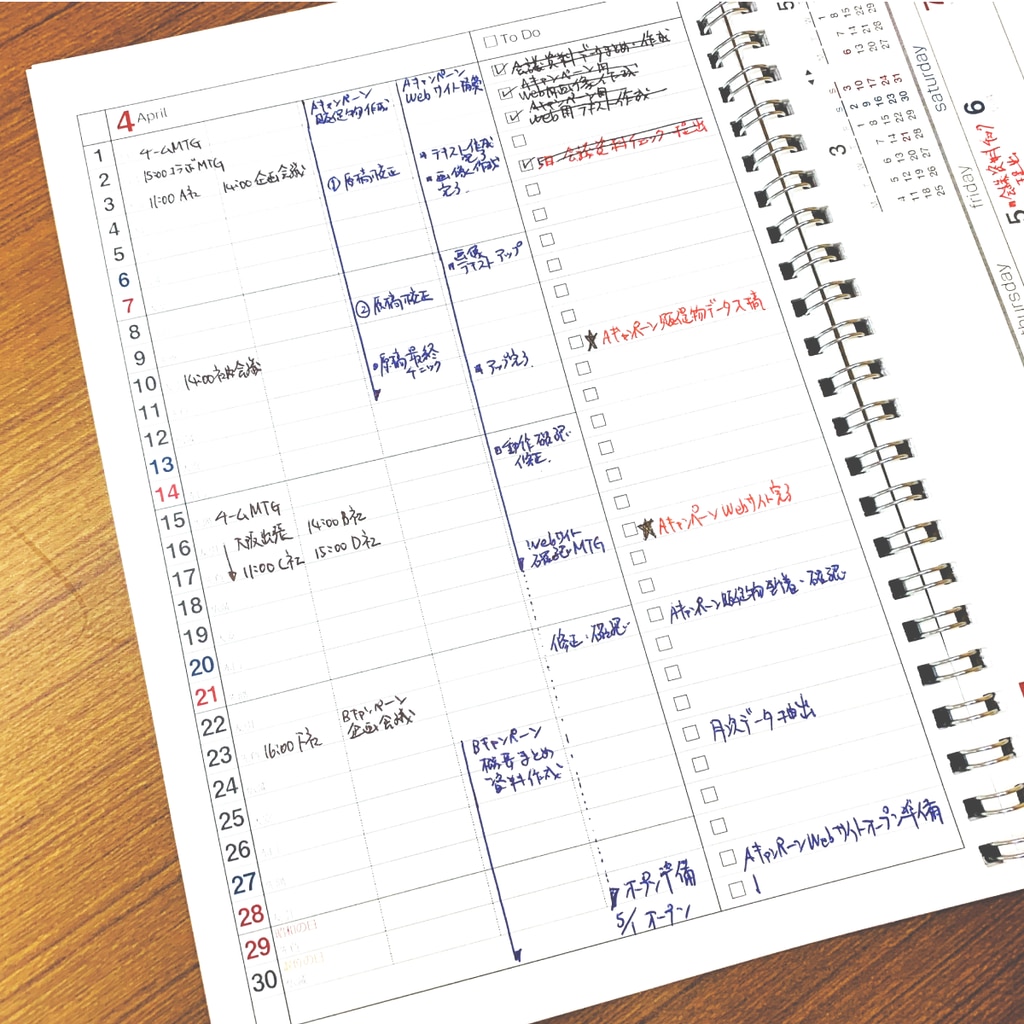 4 April
1 チームMTG
2 15:00 コラボMTG
14:00 企画会議
3 11:00 A社
4
5
6
7
8
9
10 14:00 社内会議
11
12
13
14
15 チームMTG
16 大阪出張 14:00 B社
17 11:00 C社 15:00 D社
18
19
20
21
22
Bキャンペーン
企画会議
23 16:00 F社
24
25
26
27
28
29 昭和の日
30
Aキャンペーン
販促物作成
①原稿校正
②原稿校正
原稿最終
チェック
Aキャンペーン
Webサイト構築
テキスト作成
完了
画像作成
完了.
画像
テキストアップ
アップ完了.
動作確認
修正.
Webサイト
確認MTG
修正・確認
Bキャンペーン
概要まとめ
資料作成
オープン準備
5/1 オープン
To Do
会議資料データまとめ・作成
Aキャンペーン用
Web用画像作成
Aキャンペーン用
Web用テキスト作成
5日 会議資料チェック・提出
★Aキャンペーン販促物データ入稿
★AキャンペーンWebサイト完了
Aキャンペーン販促物到着・確認
月次データ抽出
AキャンペーンWebサイトオープン準備
3
saturday
6
friday
5
thursday